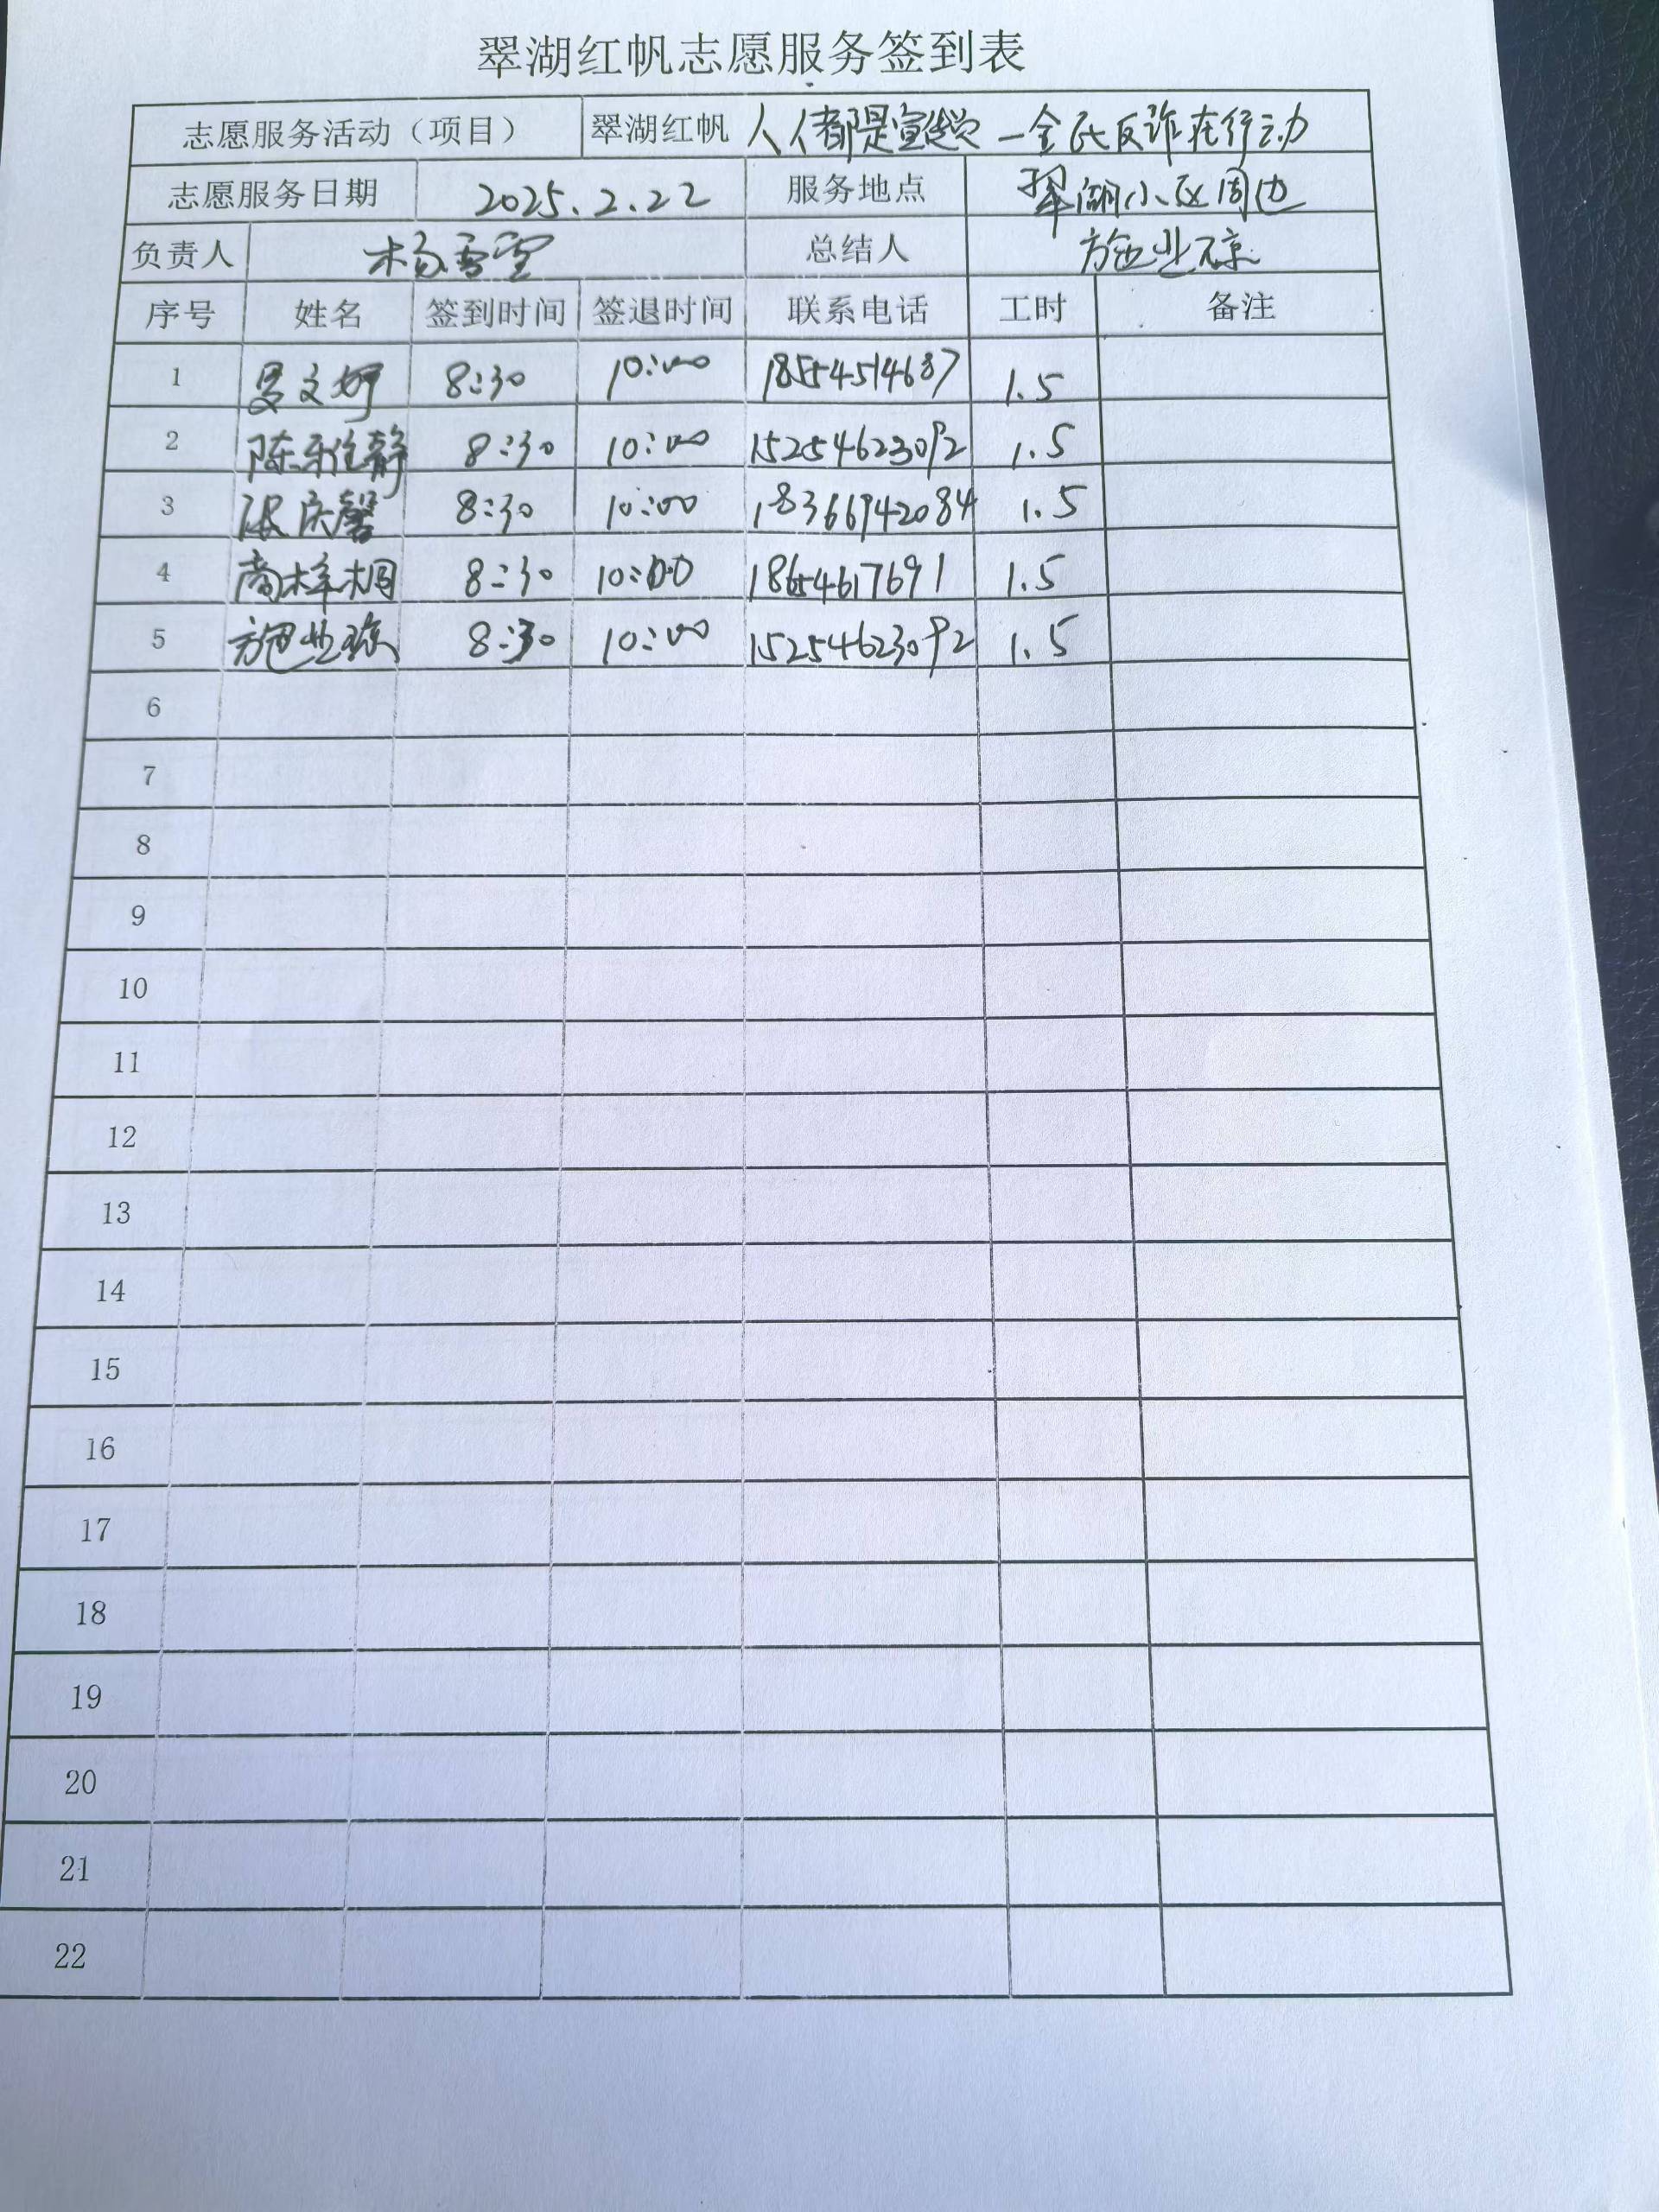 翠湖红帆志愿服务签到表
志愿服务活动（项目） 翠湖红帆 人人都是宣传员 一全民反诈在行动
志愿服务日期 2025.2.22 服务地点 翠湖小区周边
负责人 杨雪雯 总结人
序号 姓名 签到时间 签退时间 联系电话 工时 备注
1 8:30 10:00 18554514687 1.5
2 陈雅静 8:30 10:00 15254623092 1.5
3 8:30 10:00 18366942084 1.5
4 商梓桐 8:30 10:00 18654617691 1.5
5 8:30 10:00 15254623092 1.5
6
7
8
9
10
11
12
13
14
15
16
17
18
19
20
21
22